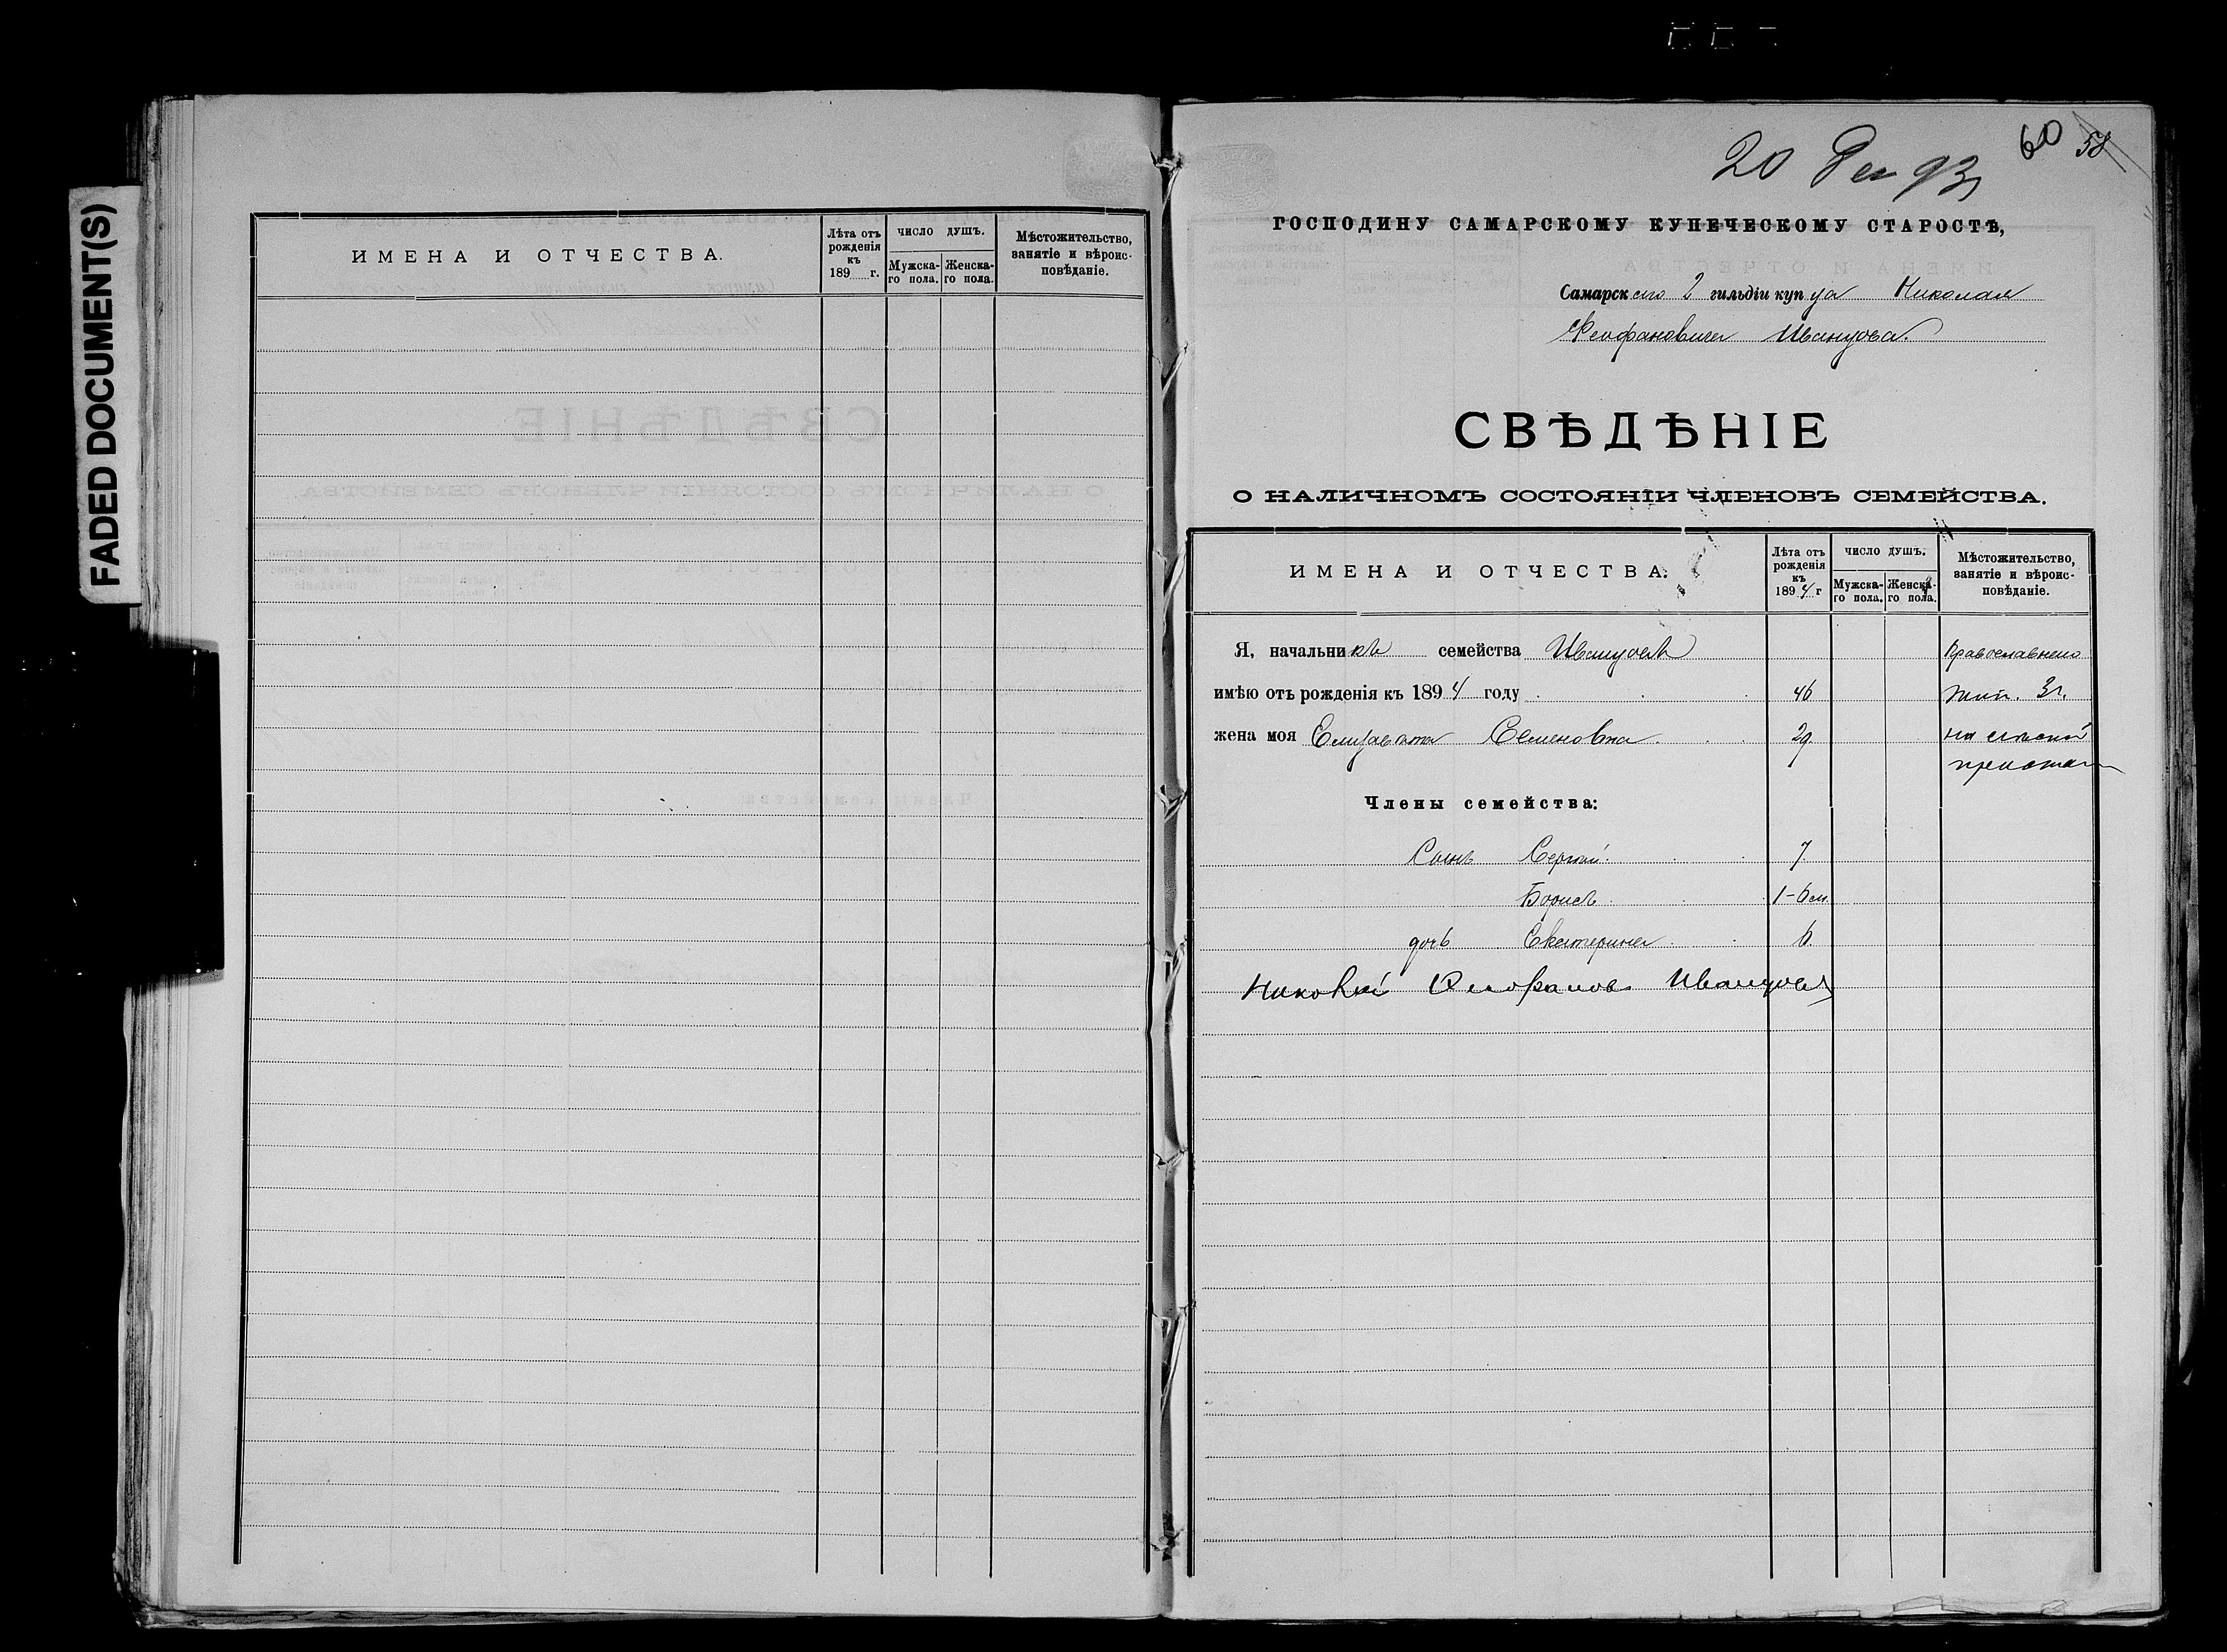 FADED DOCUMENT(S)
ИМЕНА И ОТЧЕСТВА.
Лѣта отъ рожденія къ 189 г.
ЧИСЛО ДУШЪ.
Мужска-го пола.
Женска-го пола.
Мѣстожительство, занятіе и вѣроис-повѣданіе.
60 58
20 Дек 93
ГОСПОДИНУ САМАРСКОМУ КУПЕЧЕСКОМУ СТАРОСТѢ,
Самарскаго 2 гильдіи купца Николая
Феофановича Иванцова.
СВѢДѢНІЕ
О НАЛИЧНОМЪ СОСТОЯНІИ ЧЛЕНОВЪ СЕМЕЙСТВА.
ИМЕНА И ОТЧЕСТВА.
Лѣта отъ рожденія къ 1894 г
ЧИСЛО ДУШЪ.
Мужска-го пола.
Женска-го пола.
Мѣстожительство, занятіе и вѣроис-повѣданіе.
Я, начальникъ семейства Иванцовъ Православнаго
имѣю отъ рожденія къ 1894 году 46
жена моя Елизавета Семеновна. 29
Члены семейства:
Сынъ Сергѣй. 7
Борисъ. 1-6 м.
дочь Екатерина. 6
Николай Феофановъ Иванцовъ